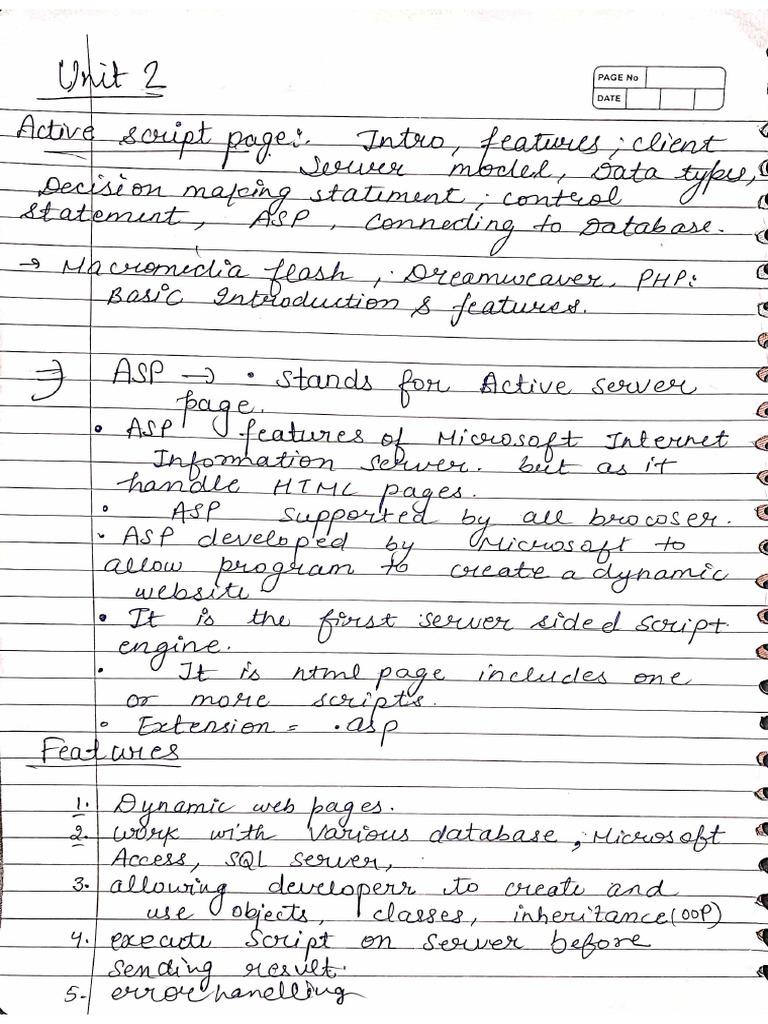 Unit 2
PAGE No
DATE
Active script page:. Intro, features; client
server model, Data types,
Decision making statement; control
statement, ASP, connecting to Database.
→ Macromedia flash, Dreamweaver, PHP:
Basic Introduction & features.
ASP → • stands for Active server
page.
• ASP features of Microsoft Internet
Information server. but as it
handle HTML pages.
• ASP supported by all brocoser.
• ASP developed by Microsoft to
allow program to create a dynamic
website
• It is the first server sided script
engine.
• It is html page includes one
or more scripts.
• Extension = .asp
Features
1. Dynamic web pages.
2. work with various database, Microsoft
Access, SQL server,
3. allowing developerr to create and
use objects, classes, inheritance(OOP)
4. execute script on server before
sending result.
5. error hanelling